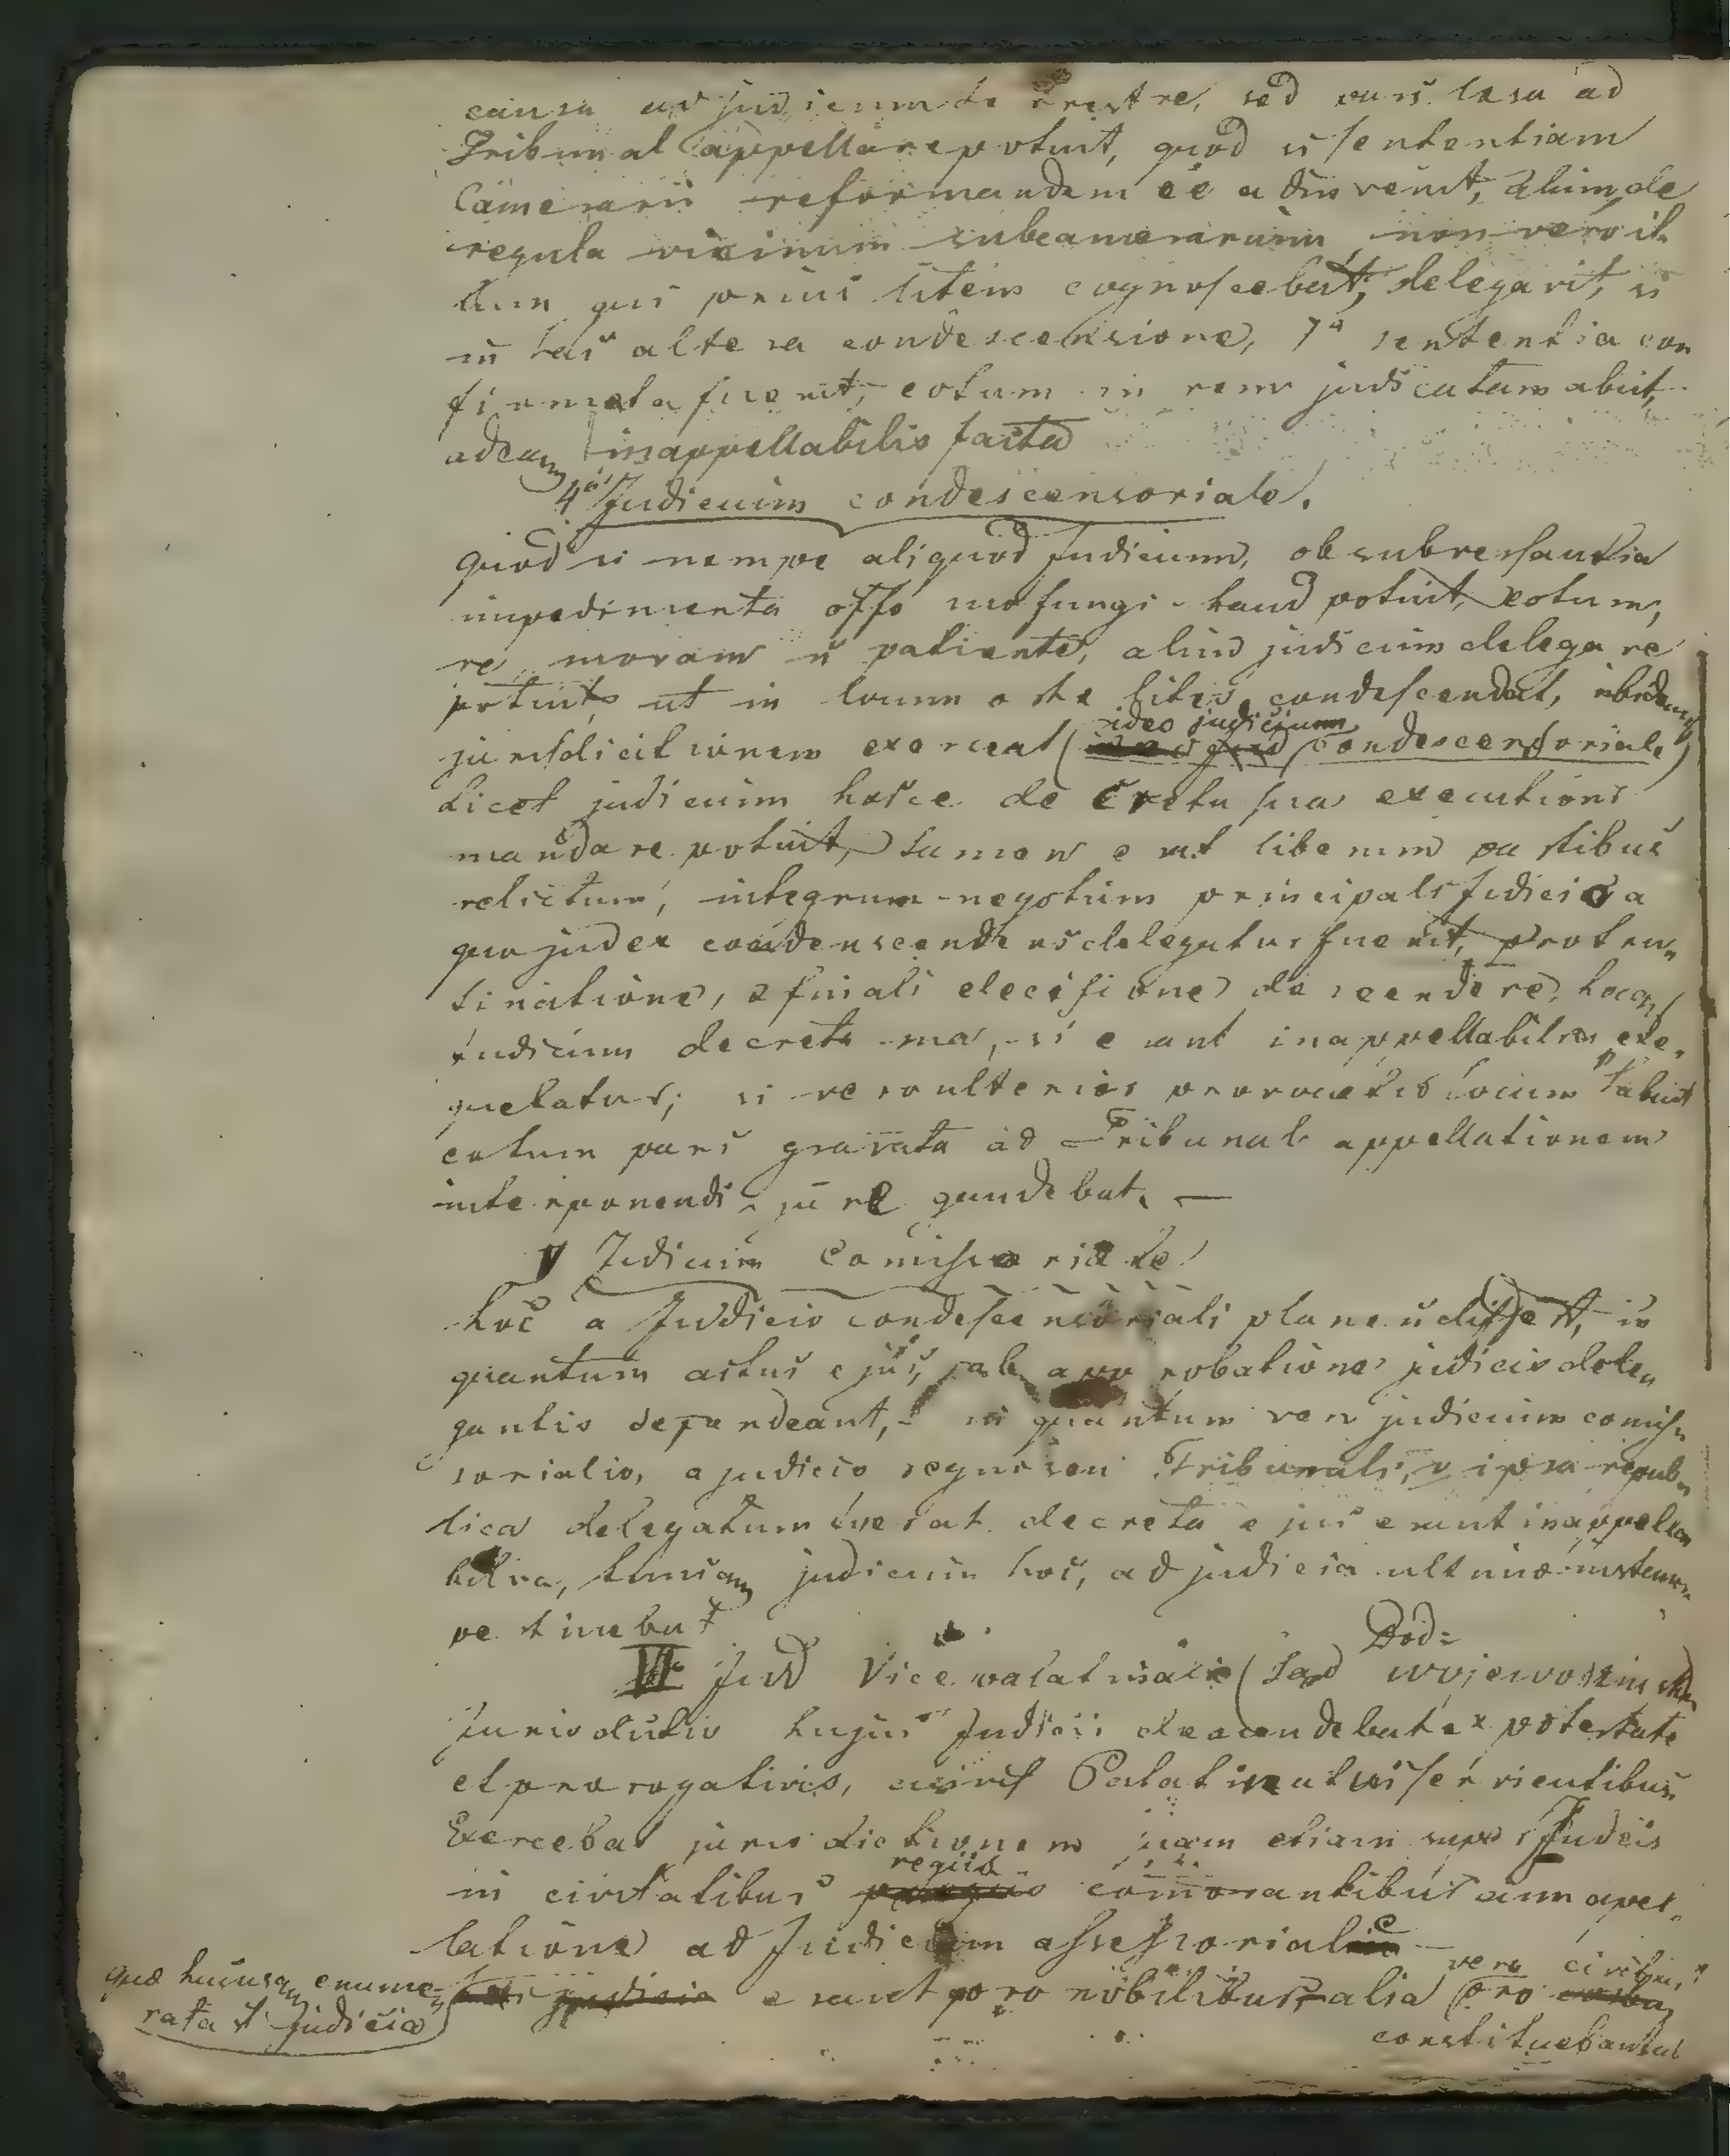 causa ad judicium terrestre, sed pars lesa ad
Tribunal appellare potuit, quod si sententiam
Camerarii reformandam ee adinvenit, alium de
regula vicinum subcamerarium non vero il-
lum qui prius litem cognoscebat, delegavit, si
in hac altera condescensione, 1a sententia con
firmata fuerit, totum in rem judicatam abiit,
adeoq inappellabilis facta
4o Judicium condescensoriale.
quod si nempe aliquod Judicium, ob subversantia
impedimenta offo suo fungi haud potuit, totum,
re moram n patiente, aliud judicium delegare
potuit, ut in locum ortae litis, condescendat, ibidemq
jurisdictionem exerceat (ideo judicium condescensoriale)
Licet judicium hocce decreta sua executioni
mandare potuit, tamen erat liberum partibus
relictum, integrum negotium principali Judicio a
quo judex condenscendens delegatus fuerit, pro ter-
minatione, e finali decisione descendere, hocq
judicium decreta sua, si erant inappellabilia exe-
quebatur; si vero ulterior provocatio locum habuit
totum pars gravata ad Tribunal appellationem
interponendi jure gaudebat. —
V Judicium Comissoriale
hoc a Judicio condescensoriali plane n differt, in
quantum actus ejus, ab approbatione judicis dele-
gantis dependeant, in quantum vero judicium comis-
soriale, a judicio regni seu Tribunali, v ipsa repub-
lica delegatum fuerat. decreta ejus erant inappella
bilia, tuncq judicium hoc, ad judicia ultimae instantiae
pertinebat
VI Jud Vice palatinale (Sąd Pod=wojewodzinski
Jurisdictio hujus Judicii descendebat ex potestate
et prerogativis, Palatinatui servientibus
Exercebat jurisdictionem suam etiam supr Judeis
in civitatibus regiis comorantibus cum apel-
latione ad Judicium assessoriale
quae hucusq enume-
rata st Judicia erant pro nobilibus, alia vero pro civibus
constituebantur